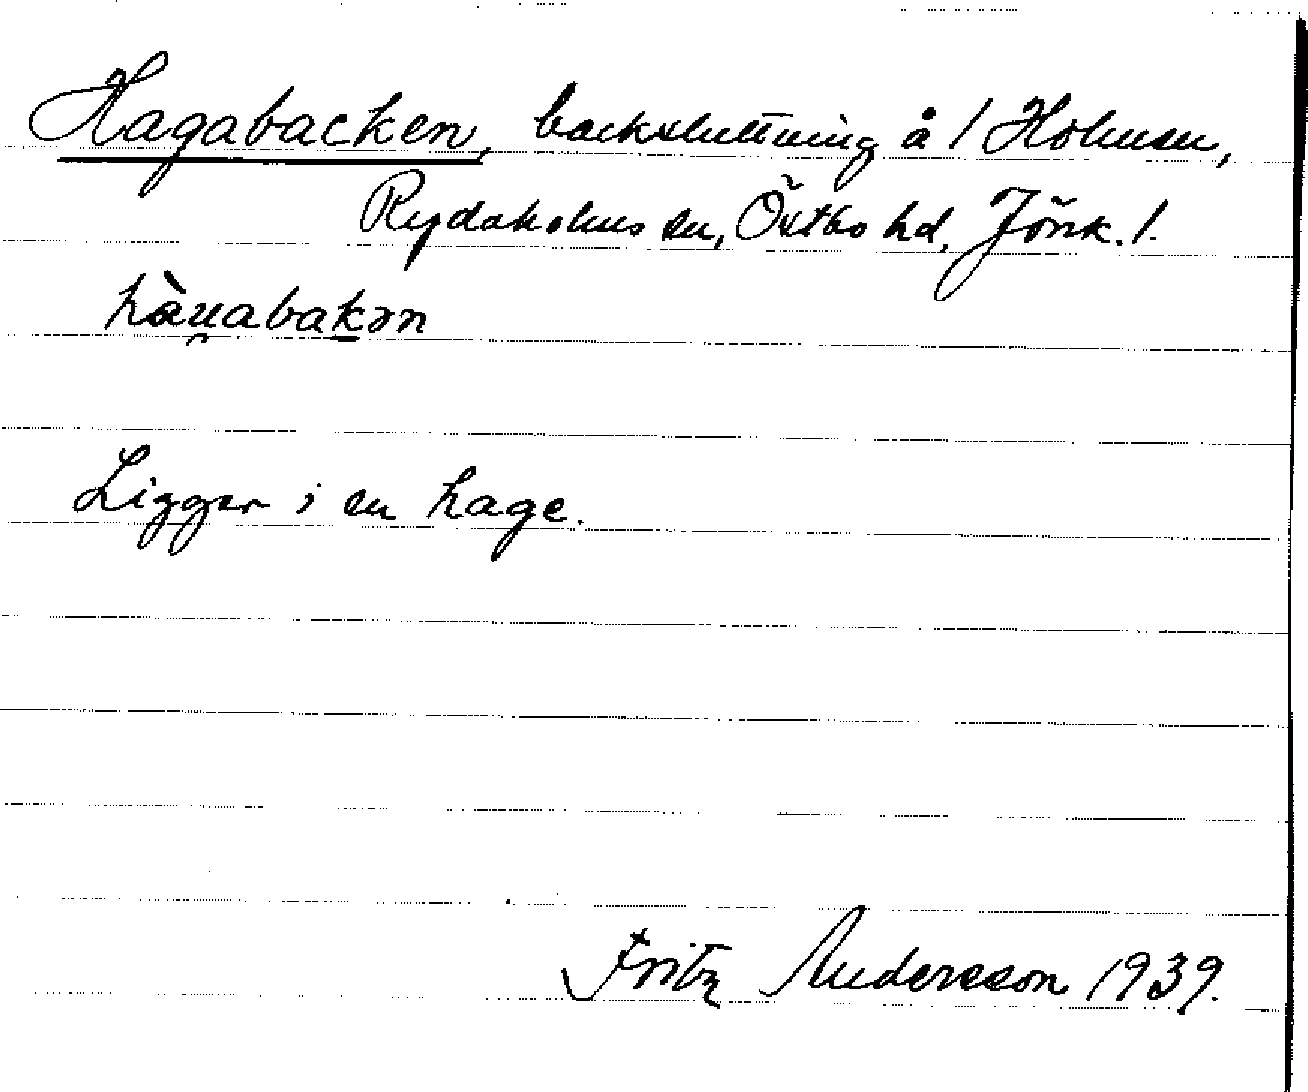 Hagabacken, backsluttning å / Holmen,
Rydaholms sn, Östbo hd, Jönk. l.
hàu̯abakən
Ligger i en hage.
Fritz Andersson 1939.